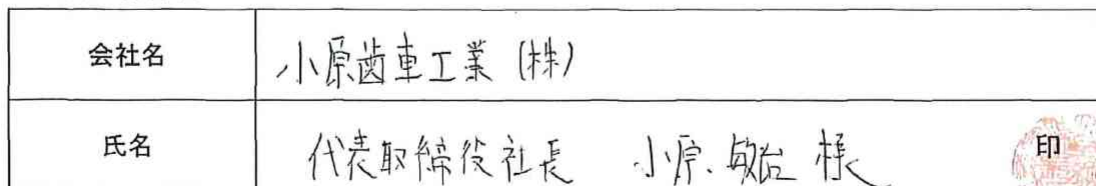 会社名 小原歯車工業(株)
氏名 代表取締役社長 小原 敏治 様 印